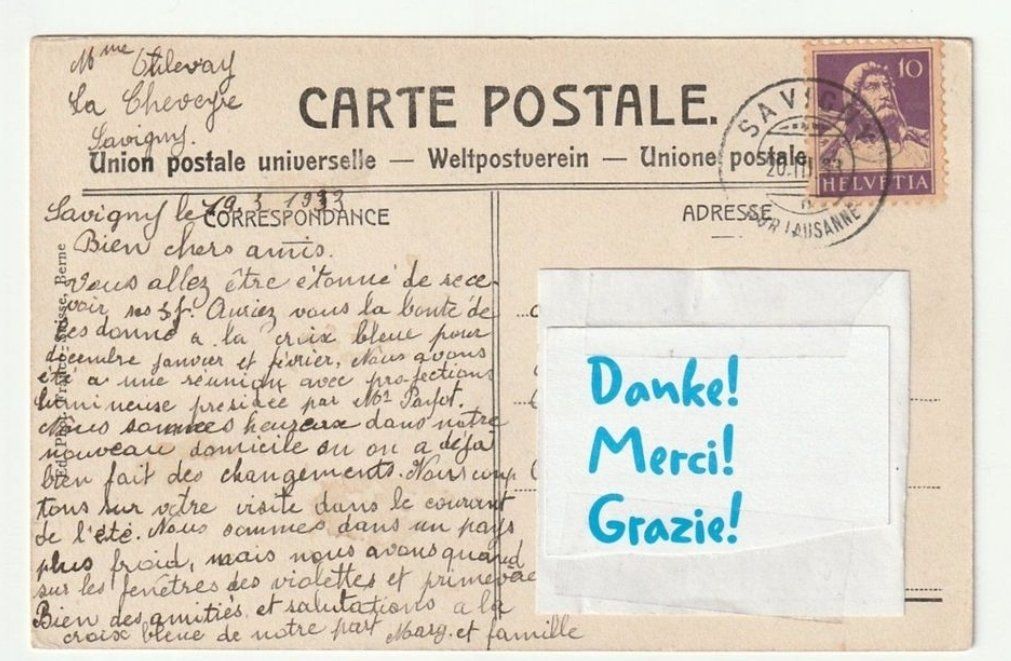 Mme
La
Savigny.
CARTE POSTALE.
Union postale universelle — Weltpostverein — Unione postale
10
HELVETIA
SAVIGNY
20.III.33
SUR LAUSANNE
CORRESPONDANCE
ADRESSE
Savigny le 19.3.1933
Bien chers amis.
Vous allez être étonné de rece-
voir ses 3f. Auriez vous la bonté de
les donné a la croix bleue pour
décembre janvier et février, Nous avons
été a une réunion avec projections
lumineuse presidée par Mr
Nous sommes heureux dans notre
nouveau domicile ou on a déja
bien fait des changements. Nous comp
tons sur votre visite dans le courant
de l'été. Nous sommes dans un pays
plus froid, mais nous avons quand
sur les fenêtres des violettes et primevère
Bien des amitiés et salutations a la
croix bleue de notre part Marg. et famille
Suisse, Berne
Danke!
Merci!
Grazie!